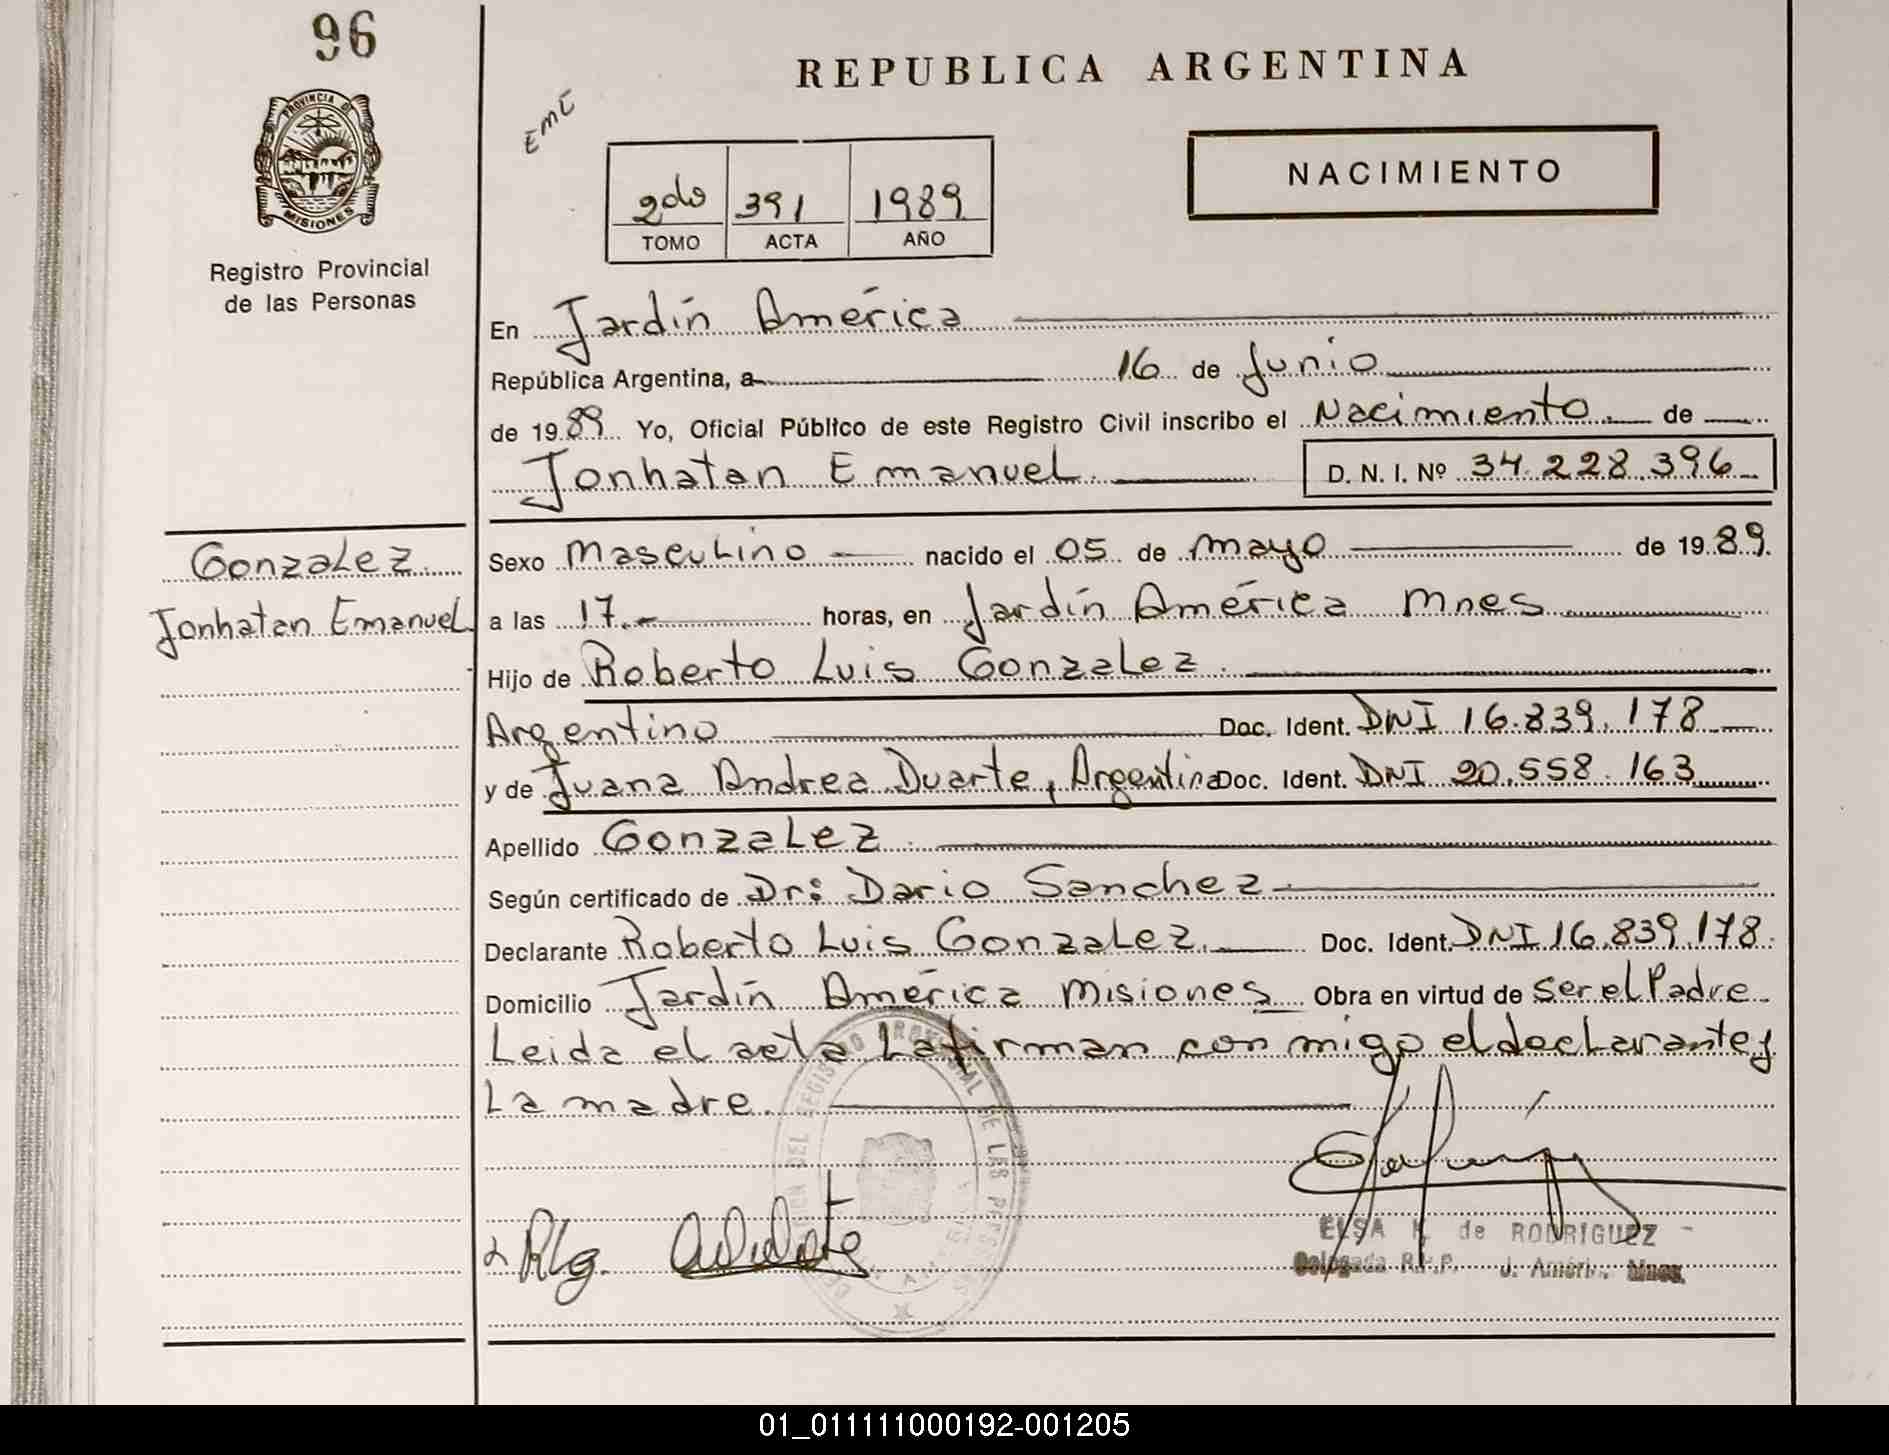 96
PROVINCIA DE
MISIONES
Registro Provincial
de las Personas
REPUBLICA ARGENTINA
EMC
2do 391 1989
TOMO ACTA AÑO
NACIMIENTO
En Jardín América
República Argentina, a 16 de Junio
de 1989 Yo, Oficial Público de este Registro Civil inscribo el Nacimiento de
Jonhatan Emanuel D. N. I. Nº 34.228.396
Gonzalez
Jonhatan Emanuel
Sexo Masculino nacido el 05 de mayo de 1989.
a las 17. horas, en Jardín América Mnes
Hijo de Roberto Luis Gonzalez.
Argentino Doc. Ident. DNI 16.839.178
y de Juana Andrea Duarte, Argentina Doc. Ident. DNI 20.558.163
Apellido Gonzalez
Según certificado de Dr: Dario Sanchez
Declarante Roberto Luis Gonzalez. Doc. Ident. DNI 16.839.178.
Domicilio Jardín América Misiones Obra en virtud de ser el Padre.
Leida el acta la firman con migo el declarante y
La madre.
Rlg.
ELSA de RODRIGUEZ
Delegada R.P.P. J. Améri. Mnes.
01_011111000192-001205